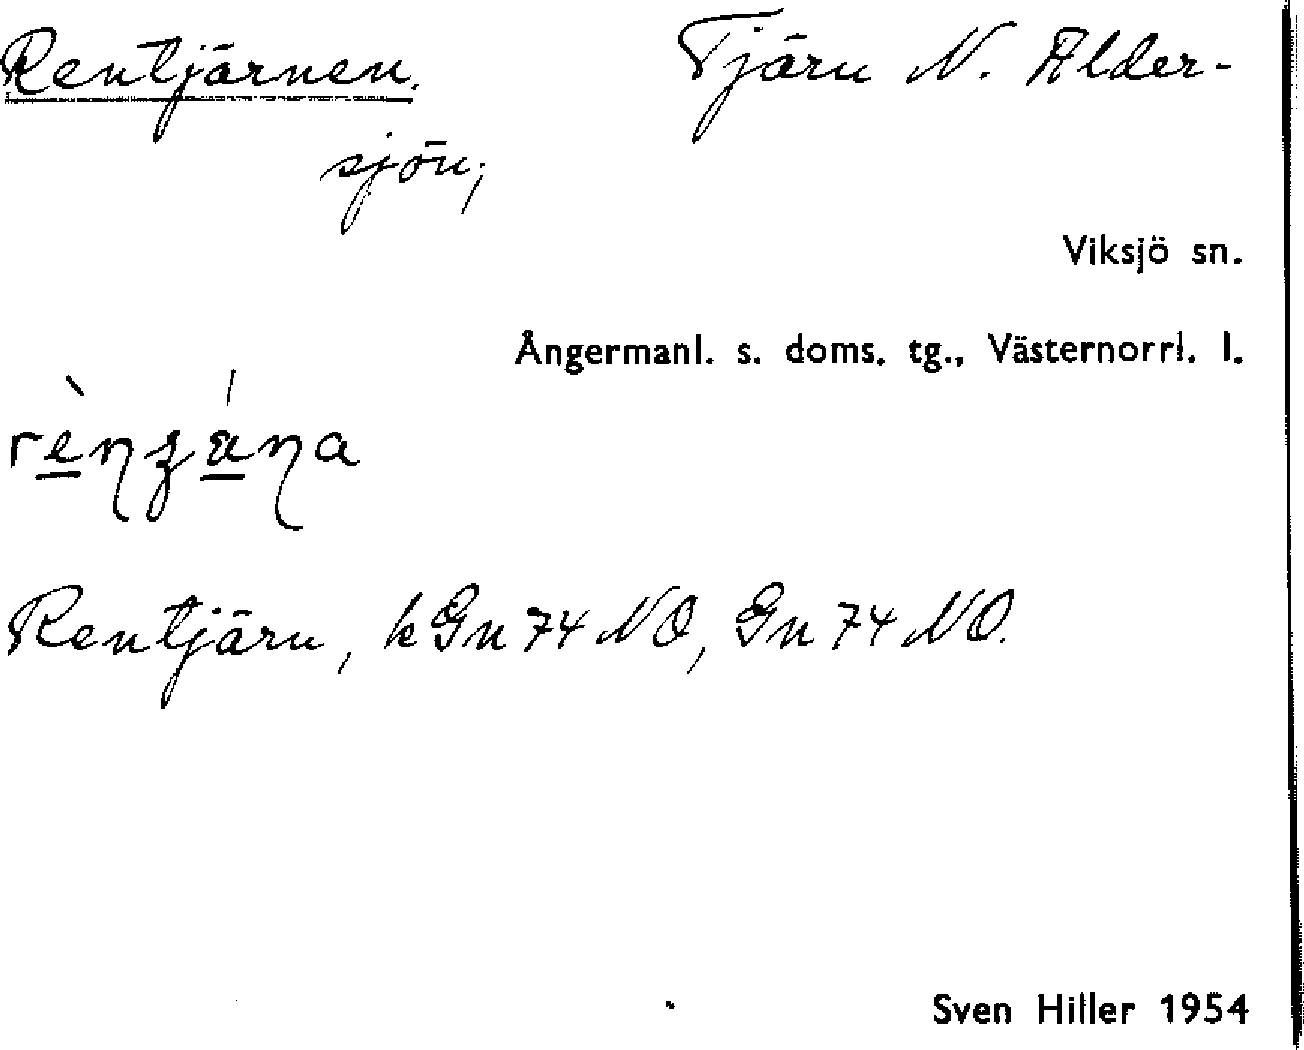 Rentjärnen. Tjärn N. Alder-
sjön;
Viksjö sn.
Ångermanl. s. doms. tg., Västernorrl. l.
Rentjärn, kGn 74 NO, Gn 74 NO.
Sven Hiller 1954